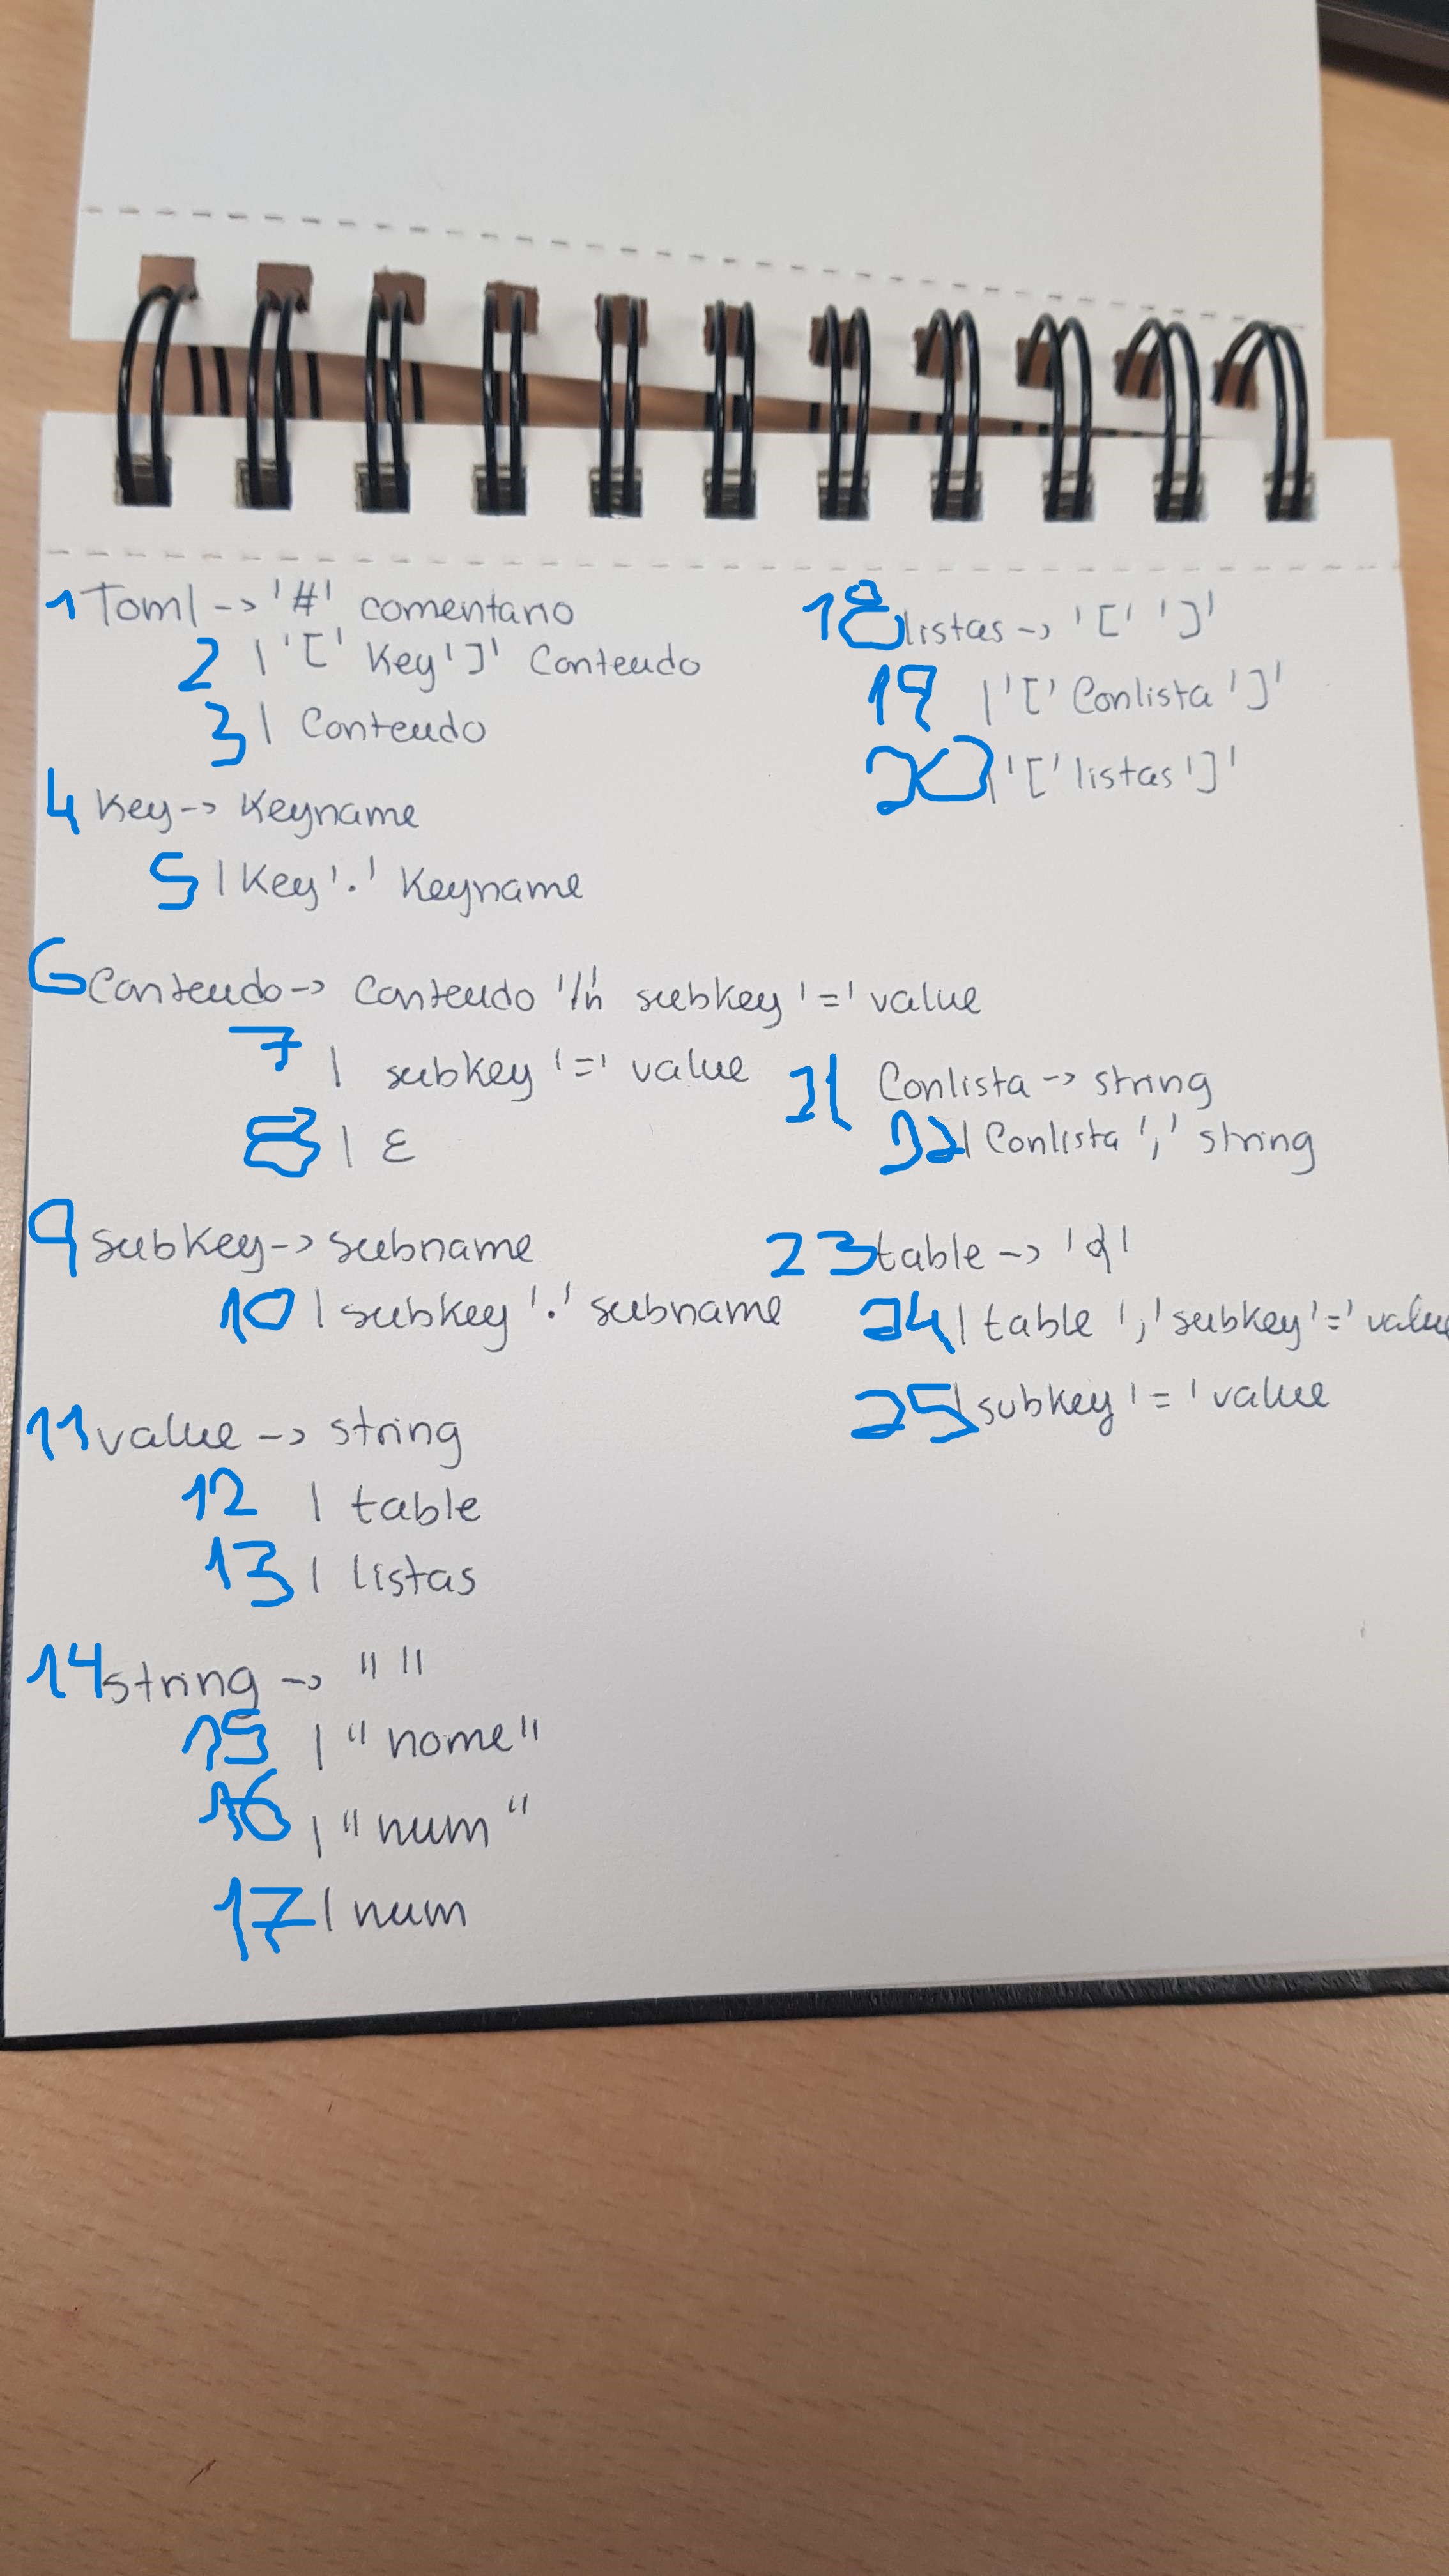 1 Toml -> '#' comentario
2 | '[' Key ']' Conteudo
3 | Conteudo
4 Key -> Keyname
5 | Key '.' Keyname
6 Conteudo -> Conteudo '/n' subkey '=' value
7 | subkey '=' value
8 | ε
9 subkey -> subname
10 | subkey '.' subname
11 value -> string
12 | table
13 | listas
14 string -> " "
15 | "nome"
16 | "num"
17 | num
18 listas -> '[' ']'
19 | '[' Conlista ']'
20 | '[' listas ']'
21 Conlista -> string
22 | Conlista ',' string
23 table ->
24 | table ',' subkey '=' value
25 | subkey '=' value